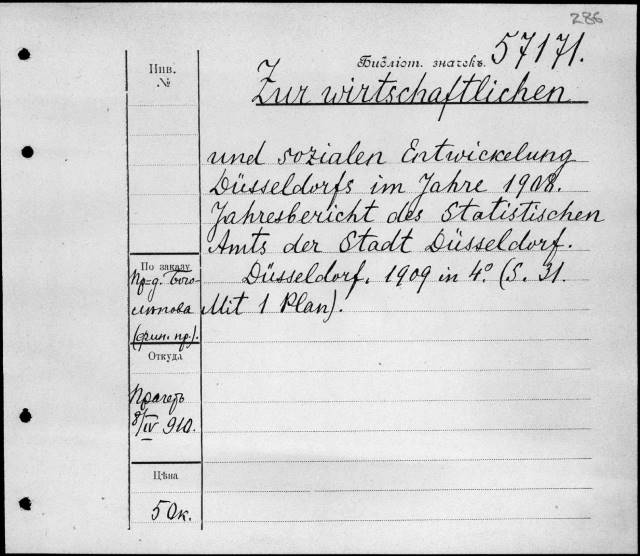 286
Библіот. значекъ. 57171.
Инв.
№
Zur wirtschaftlichen
und sozialen Entwickelung
Düsseldorfs im Jahre 1908.
Jahresbericht des Statistischen
Amts der Stadt Düsseldorf.
Düsseldorf. 1909 in 4° (S. 31.
Mit 1 Plan).
По заказу
Пр-д. Бого-
лѣпова
(фин. пр.).
Откуда
Прагеръ
8/IV 910.
Цѣна
50к.